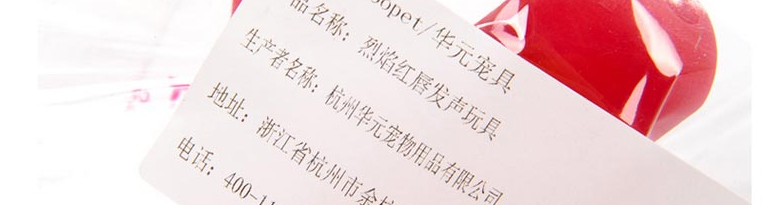 oopet/华元宠具
品名称：烈焰红唇发声玩具
生产者名称：杭州华元宠物用品有限公司
地址：浙江省杭州市余杭
电话：400-11